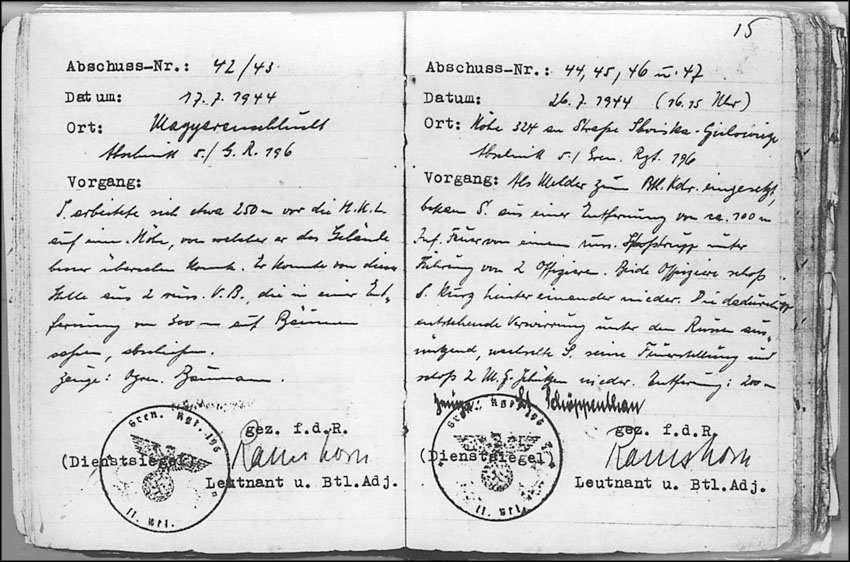 Abschuss-Nr.: 42/43
Datum: 17.7.1944
Ort: Magyarenschlucht
Abschnitt 5./G.R.196
Vorgang:
S. arbeitete sich etwa 250 m vor die H.K.L.
auf eine Höhe, von welcher er das Gelände
besser übersehen konnte. Er konnte von dieser
Stelle aus 2 russ. V.B., die in einer Ent-
fernung von 300 m auf Bäumen
saßen, abschießen.
Zeuge: Ogren. Baumann.
Gren. Rgt. 196
II. Btl.
gez. f.d.R.
(Dienstsiegel)
Ramshorn
Leutnant u. Btl.Adj.
15
Abschuss-Nr.: 44, 45, 46 u. 47
Datum: 26.7.1944 (16.15 Uhr)
Ort: Höhe 324 an Straße
Abschnitt 5./Gren. Rgt. 196
Vorgang: Als Melder zum Btl. Kdr. eingesetzt,
bekam S. aus einer Entfernung von ca. 100 m
Inf. Feuer von einem russ. Spähtrupp unter
Führung von 2 Offizieren. Beide Offiziere schoß
S. kurz hintereinander nieder. Die dadurch
entstehende Verwirrung unter den Russen aus-
nützend, wechselte S. seine Feuerstellung und
schoß 2 M.G. Schützen nieder. Entfernung: 200 m
Zeuge: Lt. Schöppenthau
Gren. Rgt. 196
II. Btl.
gez. f.d.R.
(Dienstsiegel)
Ramshorn
Leutnant u. Btl.Adj.